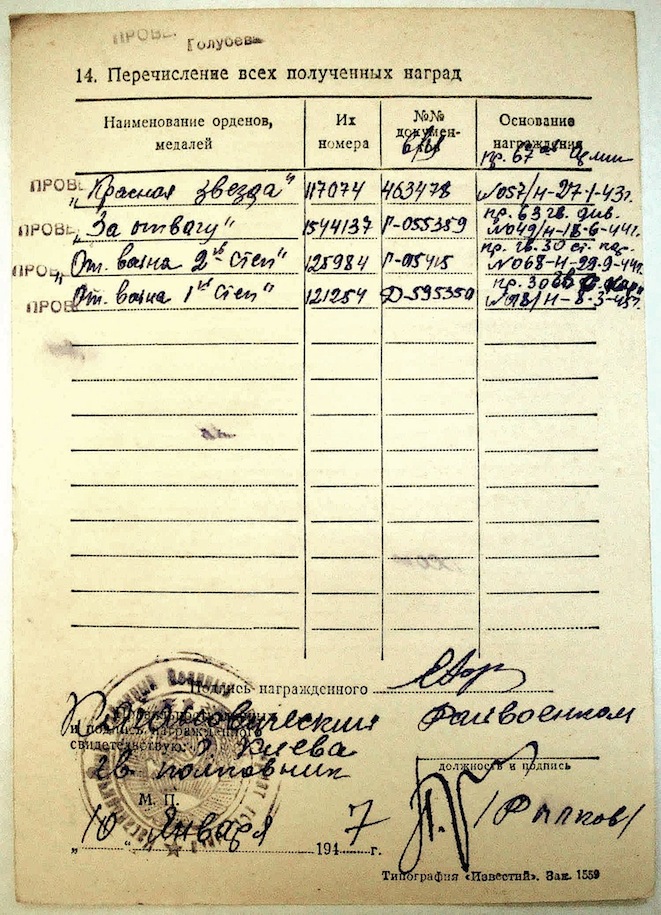 ПРОВЕ.
Голубева
14. Перечисление всех полученных наград
Наименование орденов, медалей
Их номера
№№ докумен-
Основание награждения
пр. 67
ПРОВЕ „Красная звезда“ 117074 463478 №057/н-27-1-43г.
пр. 63 гв. див.
ПРОВЕ „За отвагу“ 1544137 Г-055359 №049/н-18-6-44г.
пр. гв. 30 ст.
ПРОВ „От. война 2 степ“ 125984 №068-н-29-9-44г.
пр. 30
ПРОВЕ „От. война 1 степ“ 121254 Д-595350 8-3-45г.
Подпись награжденного
райвоенком
и подпись награжденного
свидетельствую:
г Киева
гв полковник
должность и подпись
М. П.
„10“ Января 1947 г.
Типография «Известий». Зак. 1559